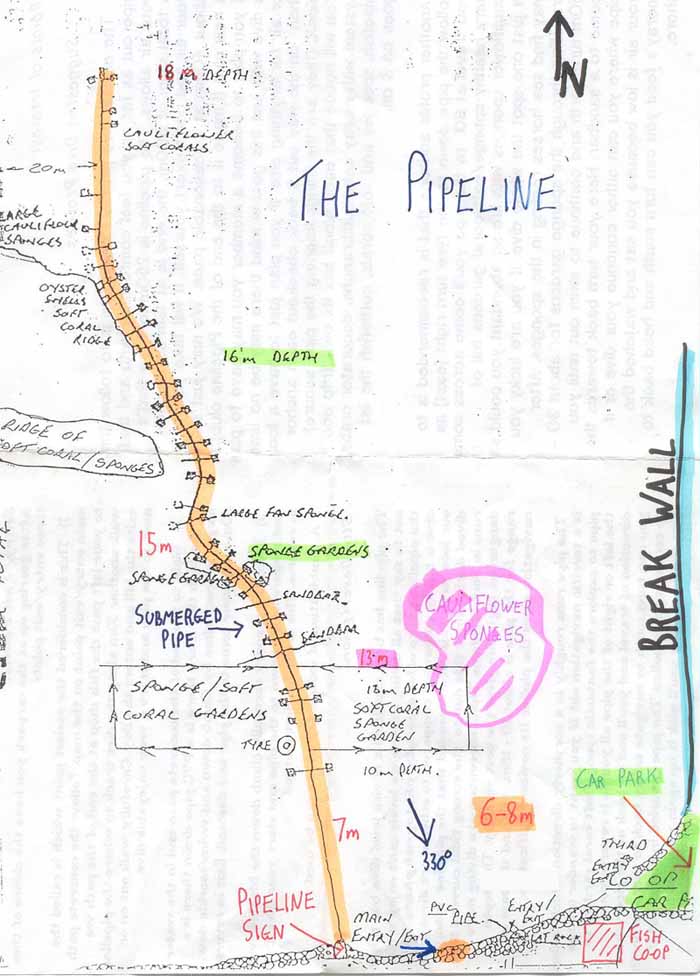 18m DEPTH
N
CAULIFLOWER
SOFT CORALS
20m
THE PIPELINE
LARGE
CAULIFLOUR
SPONGES
OYSTER
SHELLS
SOFT
CORAL
RIDGE
16m DEPTH
RIDGE OF
SOFT CORAL/SPONGES
LARGE FAN SPONGE.
15m
SPONGE GARDENS
SPONGE GARDENS
BREAK WALL
SANDBAR
CAULIFLOWER
SPONGES
SUBMERGED
PIPE
SANDBAR
13m
SPONGE/SOFT
CORAL GARDENS
DEPTH
SOFT CORAL
SPONGE
GARDEN
TYRE
10m DEPTH.
CAR PARK
6-8m
7m
330°
THIRD
ENTRY
CO OP
CAR P
PIPELINE
SIGN
MAIN
ENTRY/EXIT
PVC
PIPE.
ENTRY/
EXIT
AT ROCK
FISH
CO-OP